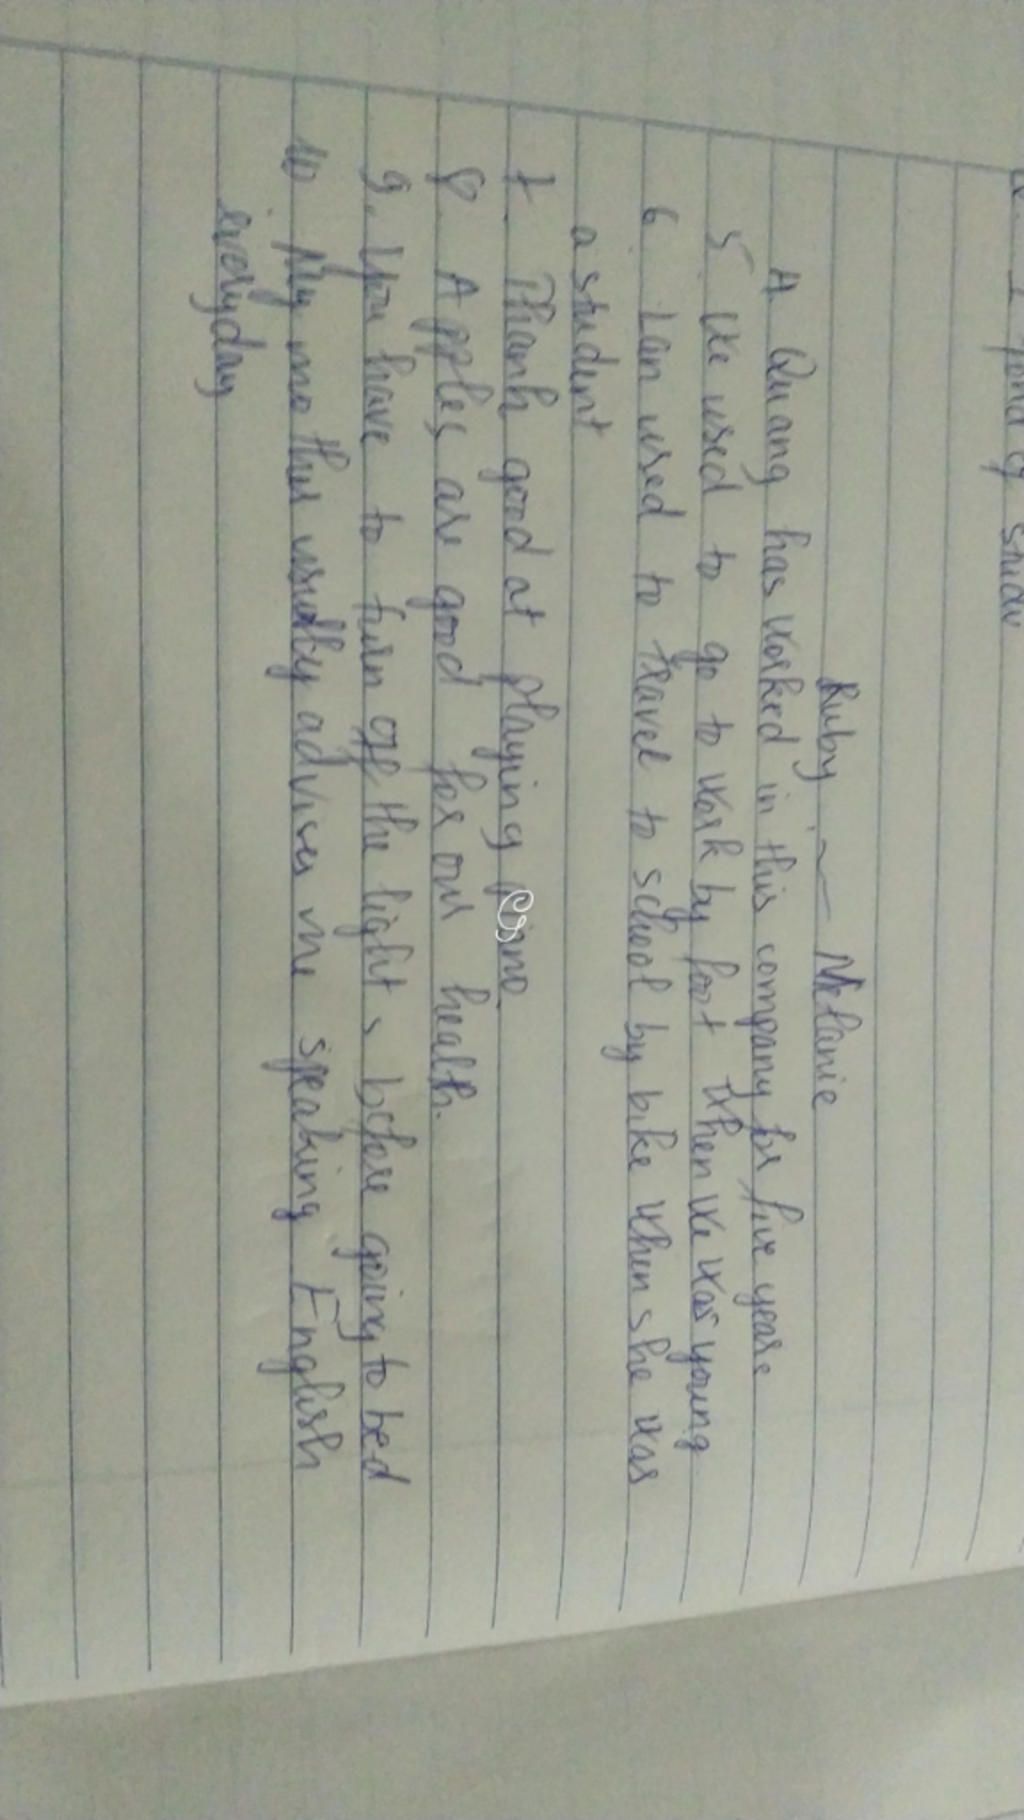 Ruby ~ Melanie
4 Quang has worked in this company for five years
5 We used to go to work by foot when we was young
6. Lan used to travel to school by bike when she was
a student
7. Thanh good at playing
8. Apples are good for our health.
9. You have to turn off the lights before going to bed
10 My mother usually advises me speaking English
everyday